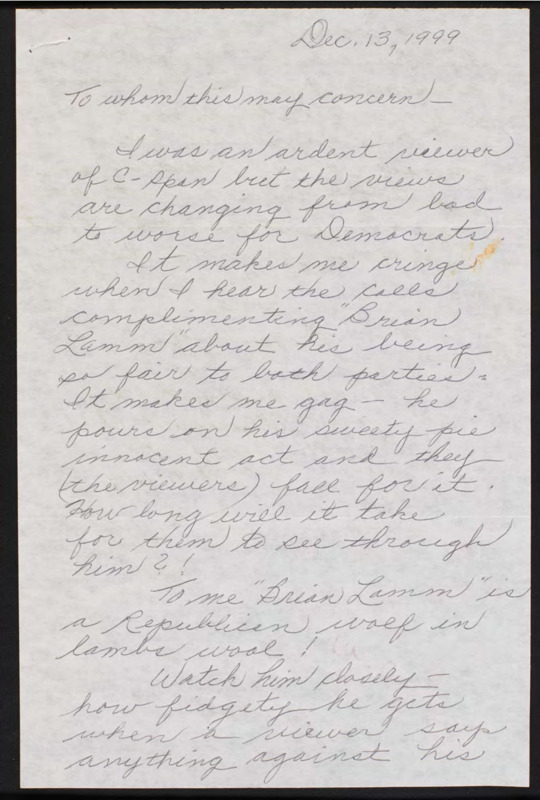 Dec. 13, 1999
To whom this may concern—
I was an ardent viewer
of C-Span but the views
are changing from bad
to worse for Democrats.
It makes me cringe
when I hear the calls
complimenting "Brian
Lamm" about his being
so fair to both parties-
It makes me gag — he
pours on his sweety pie
innocent act and they
(the viewers) fall for it.
How long will it take
for them to see through
him?!
To me "Brian Lamm" is
a Republican wolf in
lambs wool!
Watch him closely —
how fidgety he gets
when a viewer says
anything against his